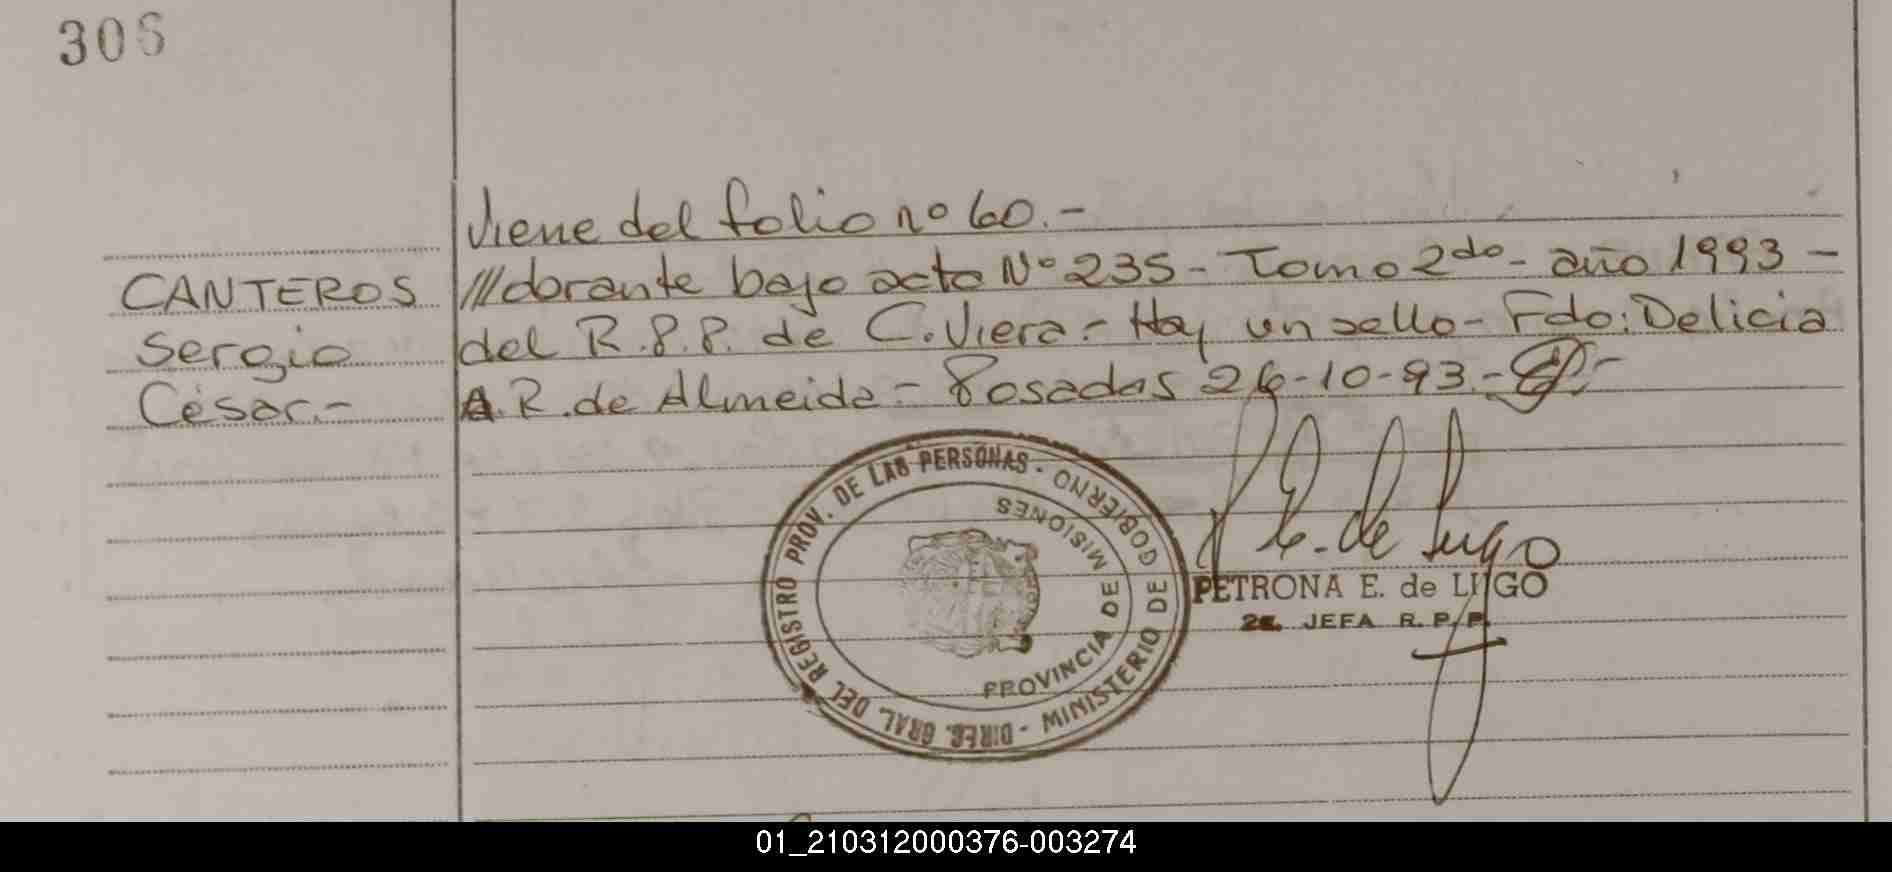 306
Viene del folio nº 60.-
CANTEROS
Sergio
César.-
///dorante bajo acta Nº 235 - Tomo 2do - año 1993 -
del R.P.P. de C. Viera - Hay un sello - Fdo: Delicia
A. R. de Almeida - Posadas 26-10-93.-
DIREC. GRAL. DEL REGISTRO PROV. DE LAS PERSONAS -
MINISTERIO DE GOBIERNO
PROVINCIA DE MISIONES
P. E. de Lugo
PETRONA E. de LUGO
JEFA R. P. P.
01_210312000376-003274